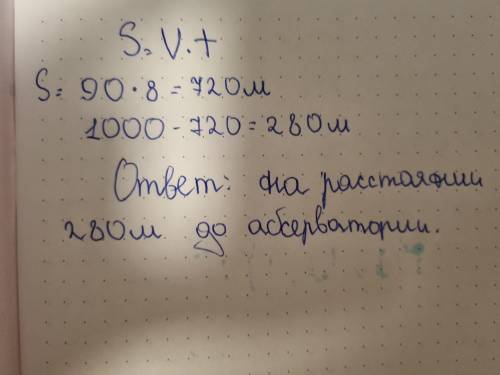 S = V · t
S = 90 · 8 = 720м
1000 - 720 = 280м
Ответ: на расстояний
280м до абсерватории.